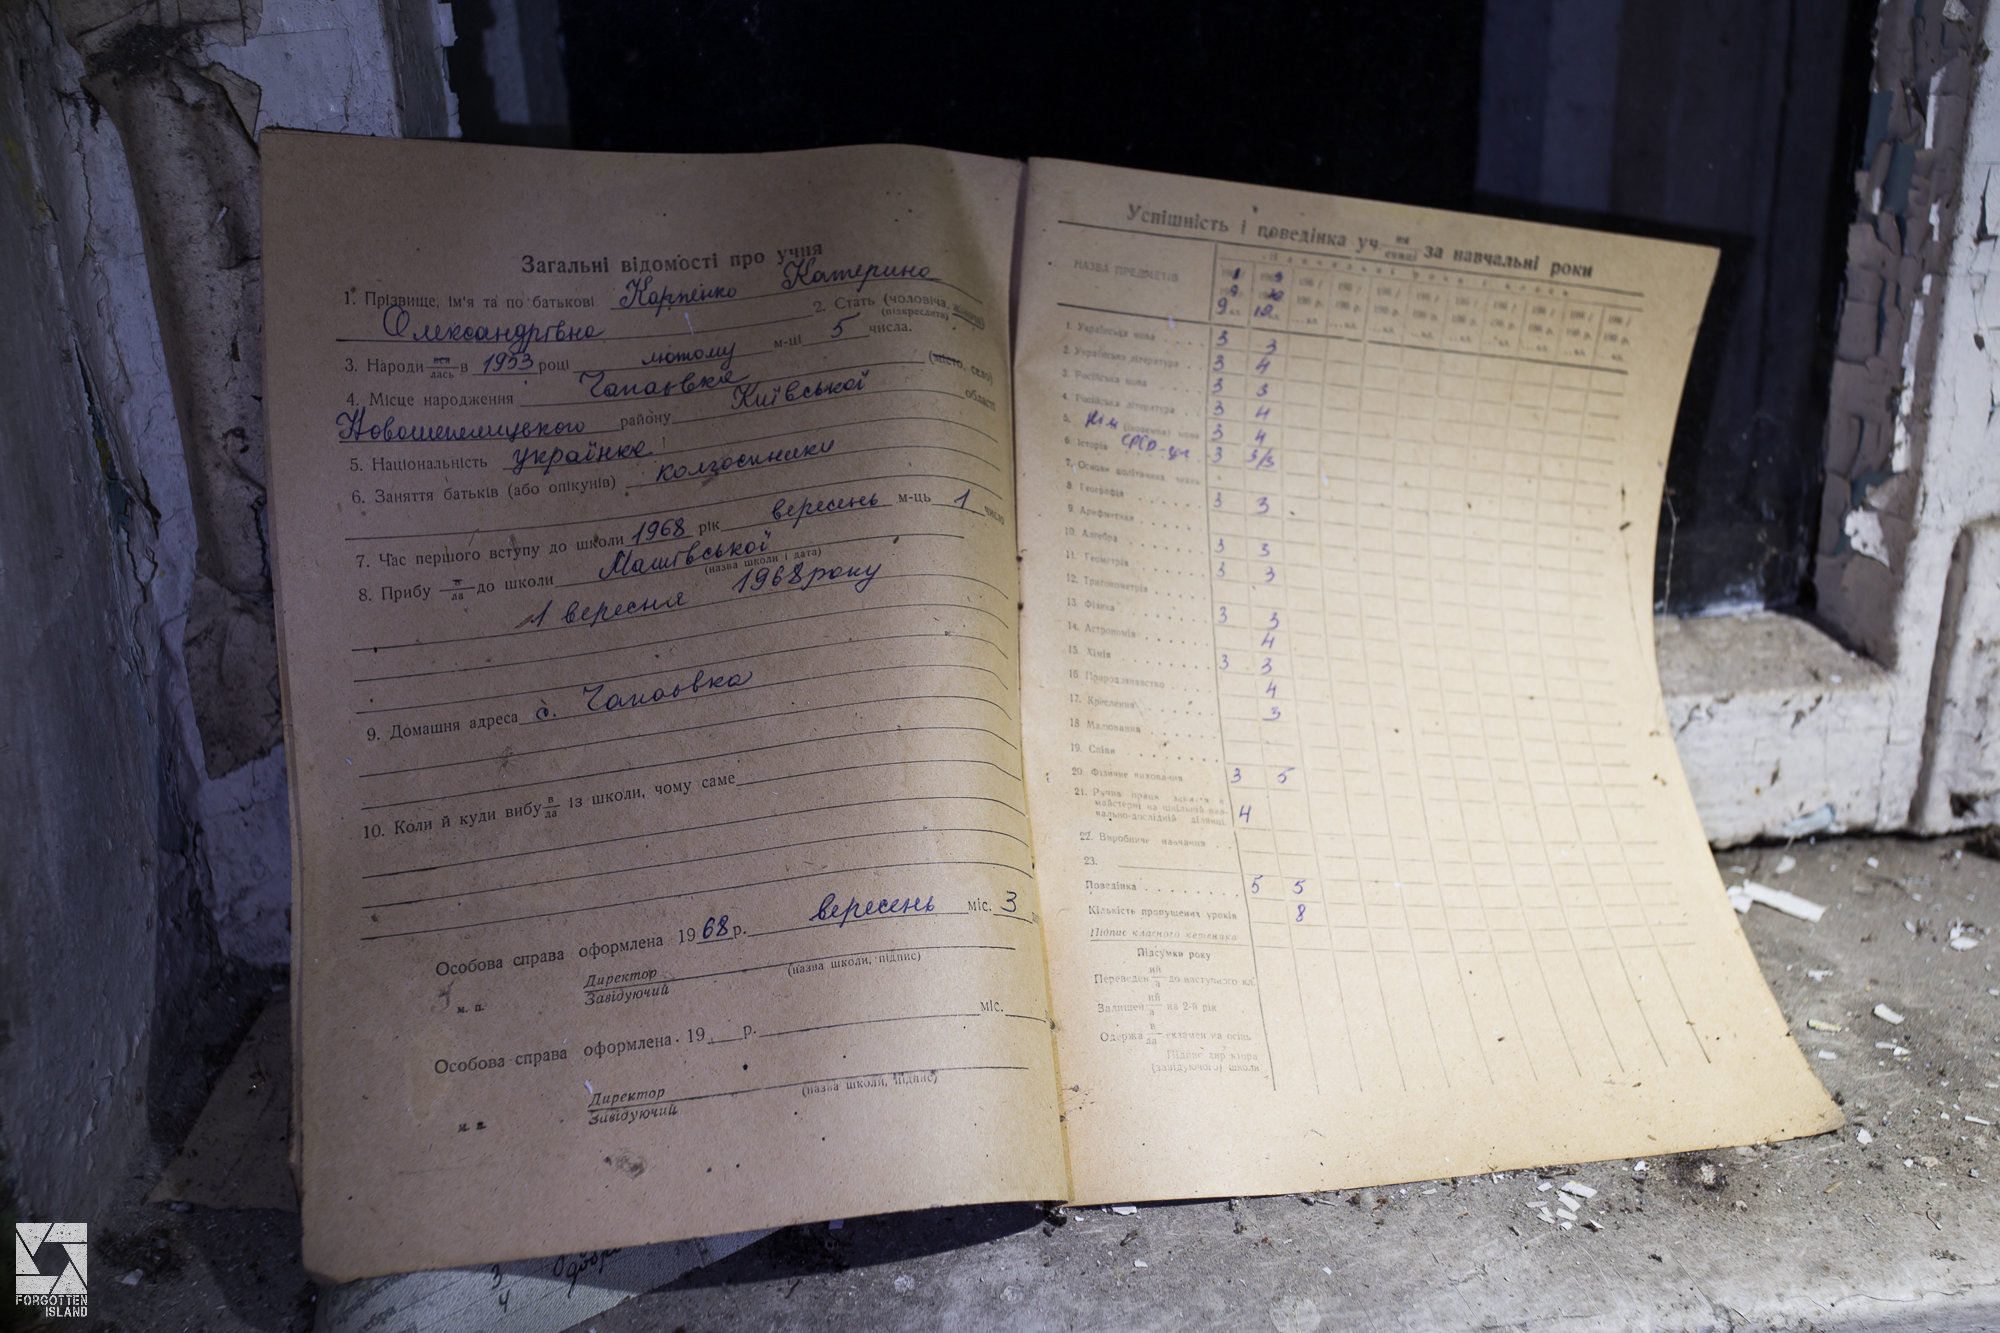 Загальні відомості про учня
1. Прізвище, ім'я та по батькові Карпенко Катерина
Олександрівна 2. Стать (чоловіча, жіноча)
(підкреслити)
3. Народи вся лась в 1953 році лютому м-ці 5 числа.
4. Місце народження Чапаєвка (місто, село)
Новошепелицького району Київської області
5. Національність українка
6. Заняття батьків (або опікунів) колгоспники
7. Час першого вступу до школи 1968 рік вересень м-ць 1 число
8. Прибу в ла до школи Машівської
(назва школи і дата)
1 вересня 1968 року
9. Домашня адреса с. Чапаєвка
10. Коли й куди вибу в ла із школи, чому саме
Особова справа оформлена 1968 р. вересень міс. 3
Директор
Завідуючий
(назва школи, підпис)
м. п.
Особова справа оформлена 19 р. міс.
Директор
Завідуючий
(назва школи, підпис)
м. п.
Успішність і поведінка уч ня ениці за навчальні роки
НАЗВА ПРЕДМЕТІВ
9 10
1. Українська мова 3 3
2. Українська література 3 4
3. Російська мова 3 3
4. Російська література 3 4
5. Нім (іноземна) мова 3 4
6. Історія СРСР 3 3/3
7. Основи політичних знань
8. Географія 3 3
9. Арифметика
10. Алгебра 3 3
11. Геометрія 3 3
12. Тригонометрія
13. Фізика 3 3
14. Астрономія 4
15. Хімія 3 3
16. Природознавство 4
17. Креслення 3
18. Малювання
19. Співи
20. Фізичне виховання 3 5
21. Ручна праця
майстерні на шкільній нав-
чально-дослідній ділянці. 4
22. Виробниче навчання
23.
Поведінка 5 5
Кількість пропущених уроків 8
Підпис класного керівника
Підсумки року
Переведен ий а до наступного кл.
Залишен ий а на 2-й рік
Одержа в ла екзамен на осінь
Підпис директора
(завідуючого) школи
3
4
FORGOTTEN
ISLAND